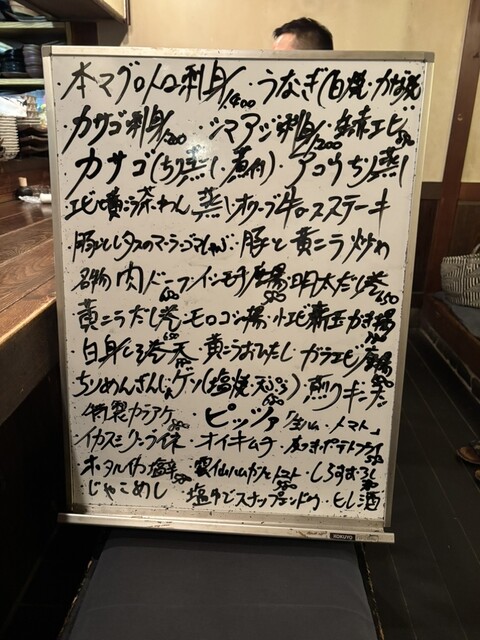 本マグロトロ刺身1400 ・うなぎ(白焼・かば焼
・カサゴ刺身1200 ・シマアジ刺身1200 ・エビ
カサゴ(ちり蒸し・煮付)・アコウちり蒸し
エビと黄ニラ茶わん蒸し・オリーブ牛ロースステーキ
・豚とレタスのマーラーゴマしゃぶ・豚と黄ニラ炒め
名物肉ドーフ ・イシモチ唐揚・明太だし巻650
黄ニラだし巻 ・モロコ揚・小エビ新玉かき揚
・白身 巻天 ・黄ニラおひたし・ガラエビ唐揚
ちりめんさんしょ・ゲソ(塩焼・天ぷら)煎りギンナン
・特製カラアゲ ・ピッツァ「生ハム・トマト」
・イカスミクリームチーズ ・オイキムチ ・皮つきポテトフライ
・ホタルイカ塩辛 ・雲仙ハムカツ トマト ・しらすおろし
・じゃこめし ・塩ゆでスナップエンドウ・ヒレ酒
KOKUYO